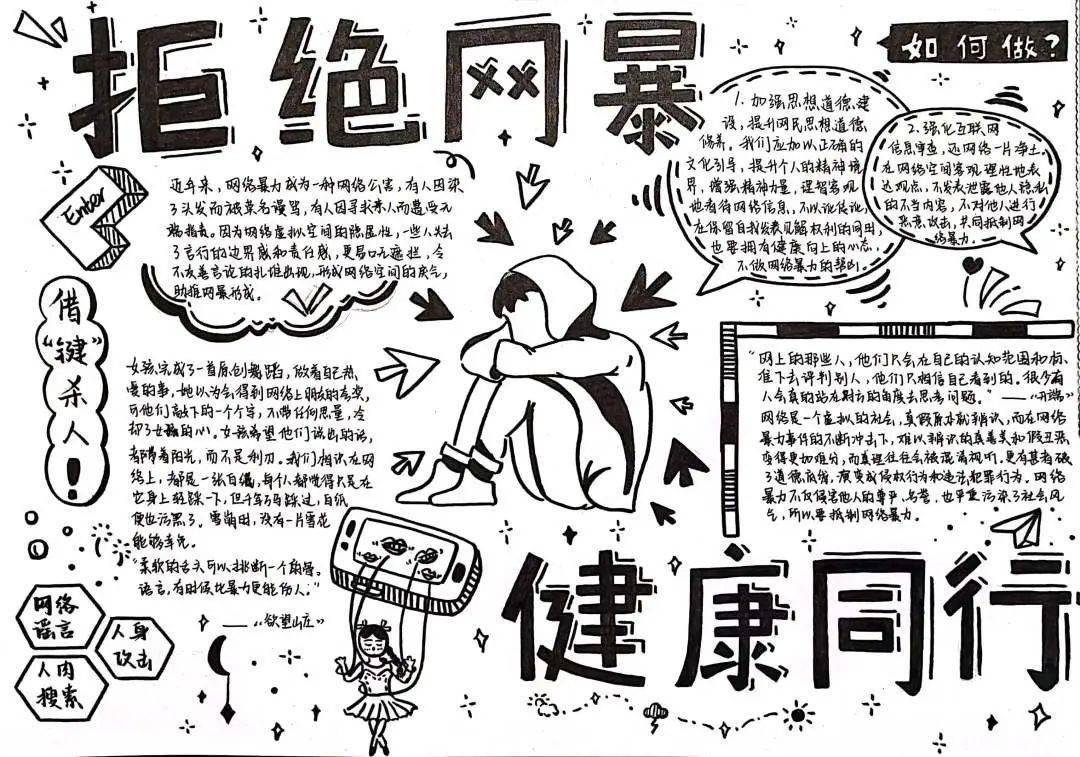 拒绝网暴
如何做？
1. 加强思想道德建
设，提升网民思想道德
修养。我们应加以正确的
文化引导，提升个人的精神境
界，增强精神力量，理智客观
地看待网络信息，不以讹传讹，
在保留自我发表见解权利的同时，
也要拥有健康向上的心态，
不做网络暴力的帮凶。
2. 强化互联网
信息审查，还网络一片净土。
在网络空间客观理性地表
达观点，不发表泄露他人隐私
的不当内容，不对他人进行
恶意攻击，共同抵制网
络暴力。
Enter
近年来，网络暴力成为一种网络公害，有人因染
了头发而被莫名谩骂，有人因寻求亲人而遭受无
端指责。因为网络虚拟空间的隐匿性，一些人失去
了言行的边界感和责任感，更易口无遮拦，令
不友善言论的扎堆出现，形成网络空间的戾气，
助推网暴形成。
借“键”杀人！
女孩完成了一首原创舞蹈，做着自己热
爱的事，她以为会得到网络上朋友的夸奖，
可他们敲下的一个个字，不带任何思量，冷
却了女孩的心。女孩希望他们说出的话，
都带着阳光，而不是利刃。我们相识在网
络上，都是一张白纸，每个人都觉得只是在
它身上轻踩一下，但千军万马踩过，白纸
便也污黑了。雪崩时，没有一片雪花
能够幸免。
“柔软的舌头可以挑断一个角骨，
语言，有时候比暴力更能伤人。”
——《欲望山庄》
“网上的那些人，他们只会在自己的认知范围和标
准下去评判别人，他们只相信自己看到的。很少有
人会真的站在对方的角度去思考问题。”——《开端》
网络是一个虚拟的社会，真假原本就难辨识，而在网络
暴力事件的不断冲击下，难以辨识的真善美和假丑恶
变得更加难分，而真理往往会被混淆视听。更有甚者破
了道德底线，演变成侵权行为和违法犯罪行为。网络
暴力不仅侵害他人的尊严、名誉，也严重污染了社会风
气，所以要抵制网络暴力。
网络
谣言
人身
攻击
人肉
搜索
健康同行